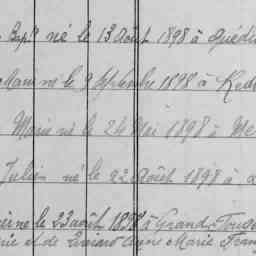 Bapte né le 13 Août 1898 à Quédi
Marie né le 9 Septembre 1898 à
Marie né le 24 Mai 1898 à Me
Julien né le 22 Août 1898 à
né le 23 août 1898 à Grand-Fouge
et de Anne Marie Fran